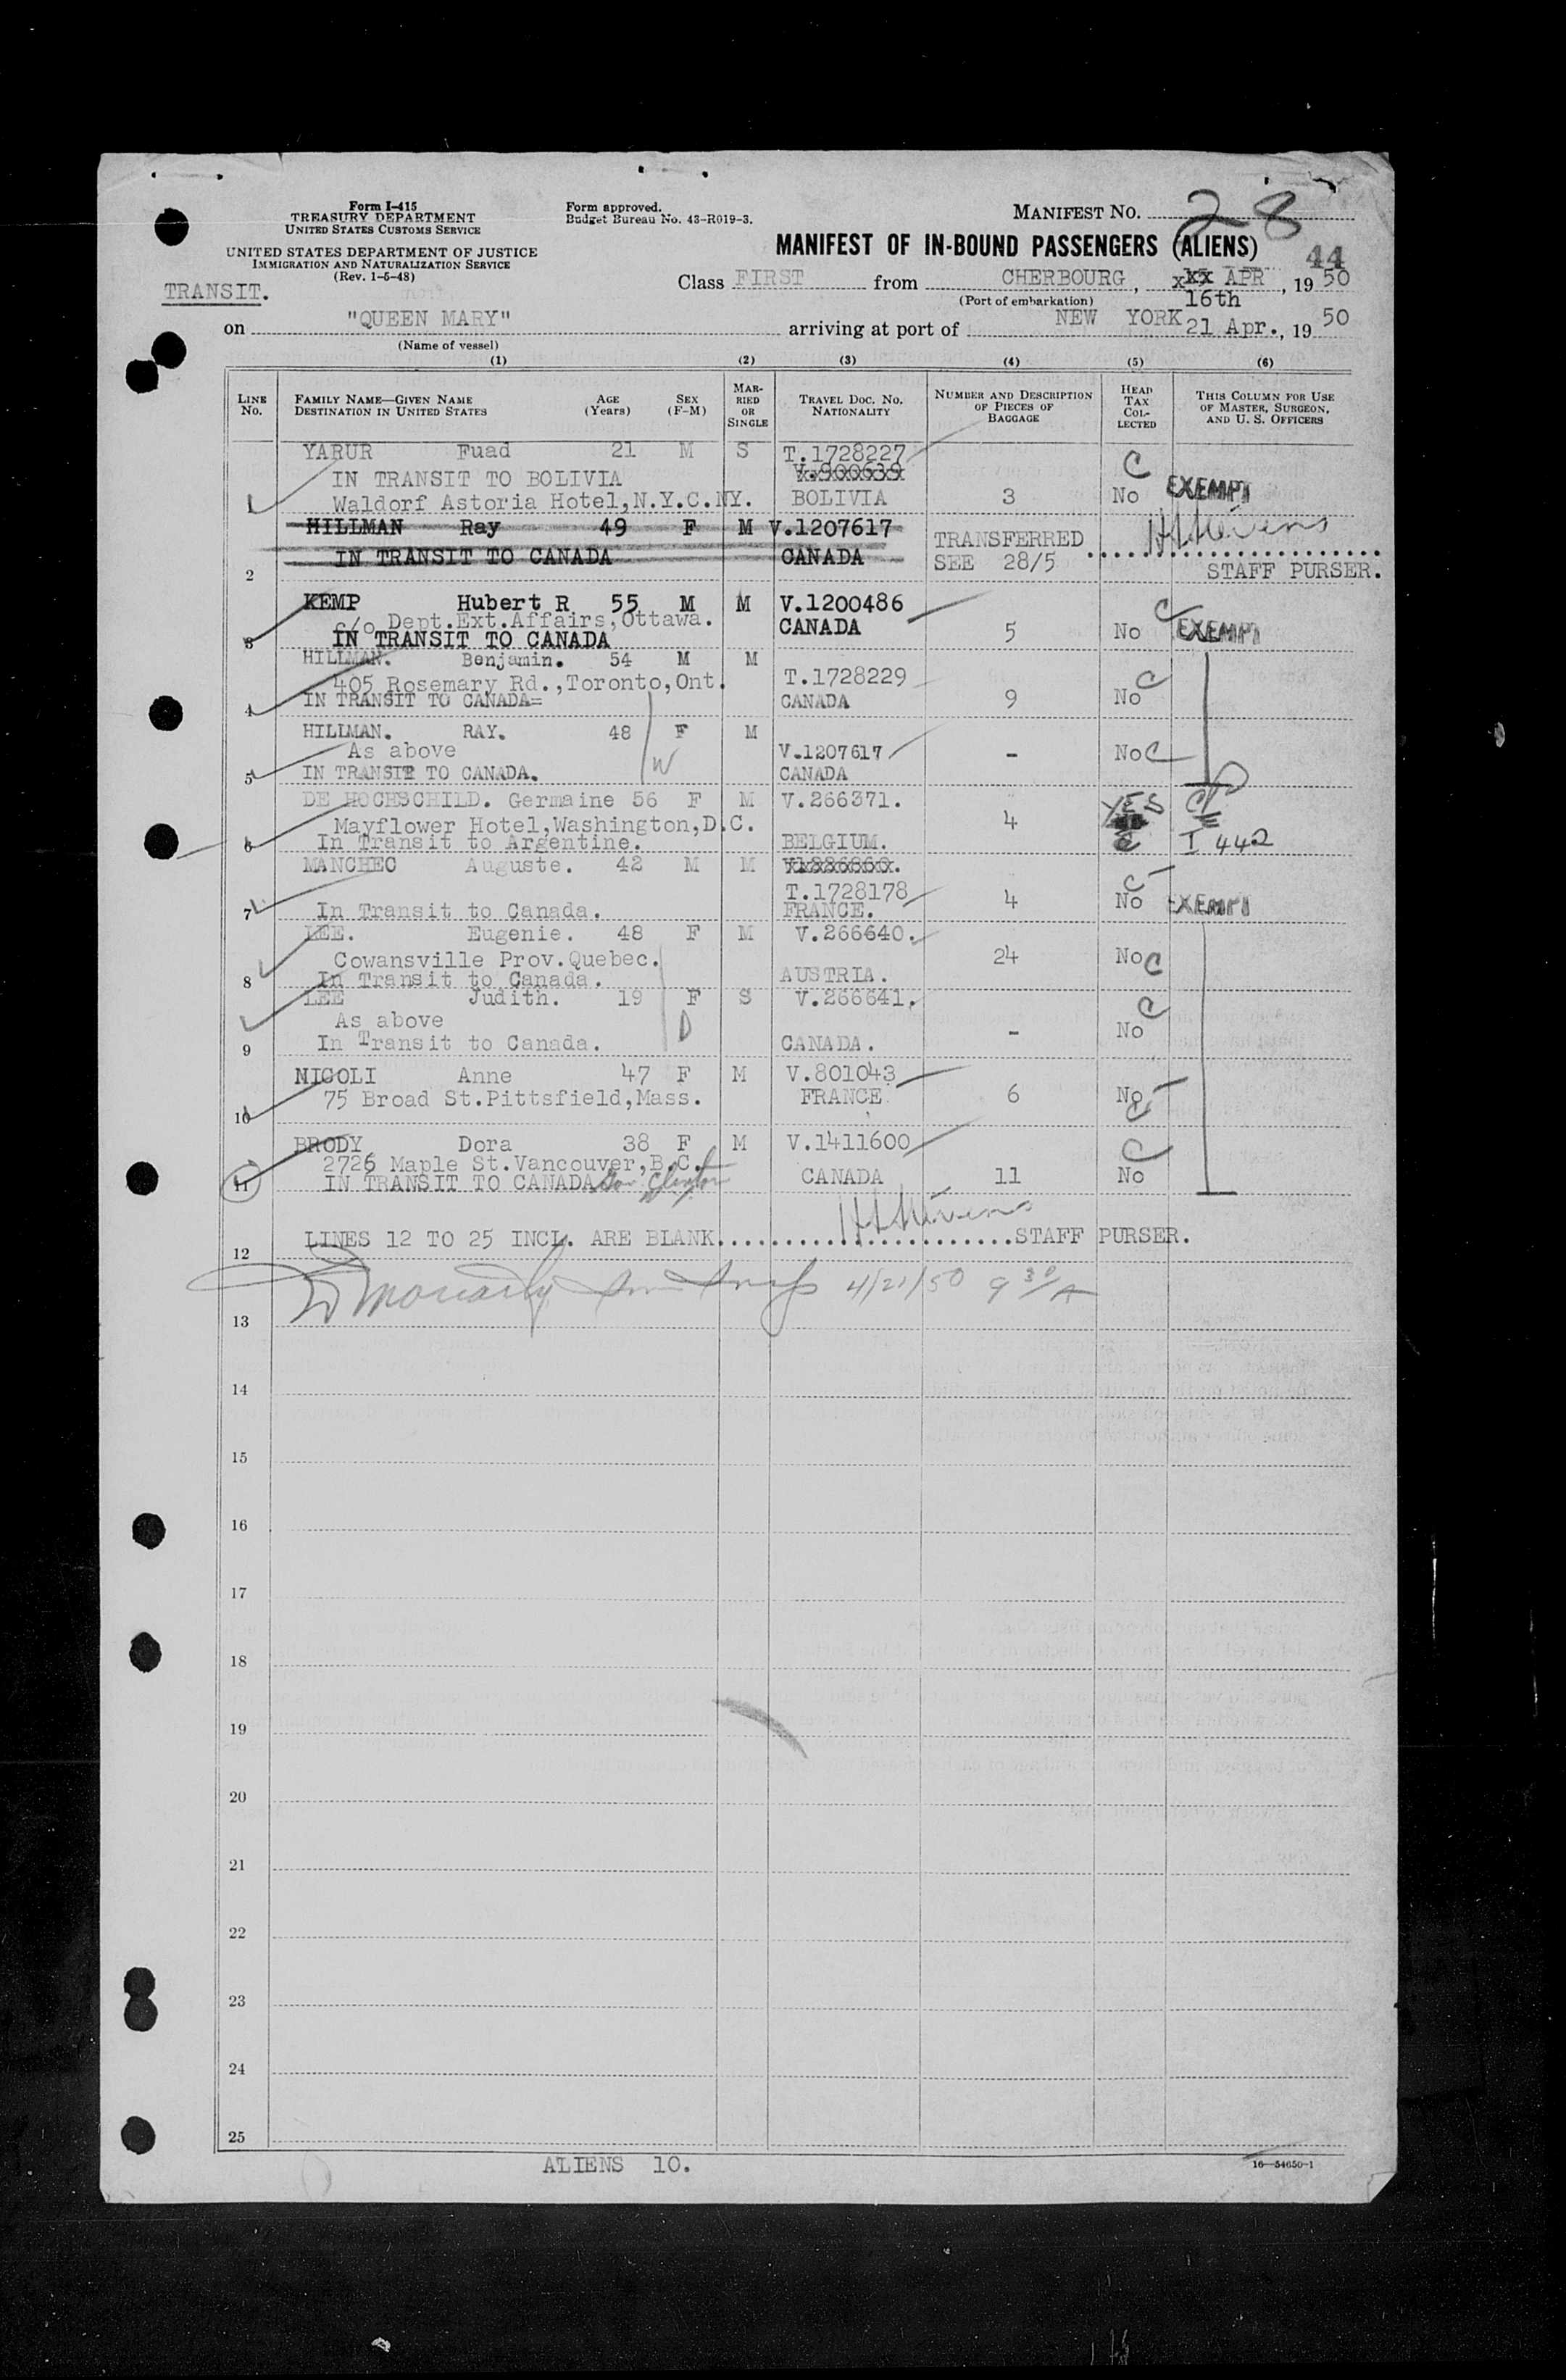 Form I-415
TREASURY DEPARTMENT
UNITED STATES CUSTOMS SERVICE
UNITED STATES DEPARTMENT OF JUSTICE
IMMIGRATION AND NATURALIZATION SERVICE
(Rev. 1-5-48)
TRANSIT.
Form approved.
Budget Bureau No. 43-R019-3.
MANIFEST NO. 28
MANIFEST OF IN-BOUND PASSENGERS (ALIENS)
44
Class FIRST from CHERBOURG, APR 16th, 1950
(Port of embarkation)
on "QUEEN MARY" arriving at port of NEW YORK 21 Apr., 1950
(Name of vessel)
(1) (2) (3) (4) (5) (6)
LINE No. FAMILY NAME—GIVEN NAME DESTINATION IN UNITED STATES AGE (Years) SEX (F-M) MARRIED OR SINGLE TRAVEL DOC. NO. NATIONALITY NUMBER AND DESCRIPTION OF PIECES OF BAGGAGE HEAD TAX COLLECTED THIS COLUMN FOR USE OF MASTER, SURGEON, AND U. S. OFFICERS
YARUR Fuad 21 M S T.1728227
IN TRANSIT TO BOLIVIA V.900639 C
1 Waldorf Astoria Hotel,N.Y.C.NY. BOLIVIA 3 No EXEMPT
HILLMAN Ray 49 F M V.1207617 TRANSFERRED
IN TRANSIT TO CANADA CANADA SEE 28/5
2 STAFF PURSER.
KEMP Hubert R 55 M M V.1200486 C
c/o Dept.Ext.Affairs,Ottawa.
3 IN TRANSIT TO CANADA CANADA 5 No EXEMPT
HILLMAN. Benjamin. 54 M M
405 Rosemary Rd.,Toronto,Ont. T.1728229 C
4 IN TRANSIT TO CANADA= CANADA 9 No
HILLMAN. RAY. 48 F M
As above V.1207617 - No C
5 IN TRANSIT TO CANADA. W CANADA
DE HOCHSCHILD. Germaine 56 F M V.266371. YES
Mayflower Hotel,Washington,D.C. 4
6 In Transit to Argentine. BELGIUM. I 442
MANCHEC Auguste. 42 M M
T.1728178 4 No C EXEMPT
7 In Transit to Canada. FRANCE.
LEE. Eugenie. 48 F M V.266640.
Cowansville Prov.Quebec. 24 No C
8 In Transit to Canada. AUSTRIA.
LEE Judith. 19 F S V.266641. C
As above D - No
9 In Transit to Canada. CANADA.
NICOLI Anne 47 F M V.801043
10 75 Broad St.Pittsfield,Mass. FRANCE 6 No C
BRODY Dora 38 F M V.1411600 C
2726 Maple St.Vancouver,B.C.
11 IN TRANSIT TO CANADA Gov Clinton CANADA 11 No
12 LINES 12 TO 25 INCL. ARE BLANK. STAFF PURSER.
4/21/50 9 30/A
13
14
15
16
17
18
19
20
21
22
23
24
25
ALIENS 10.
16—54650-1